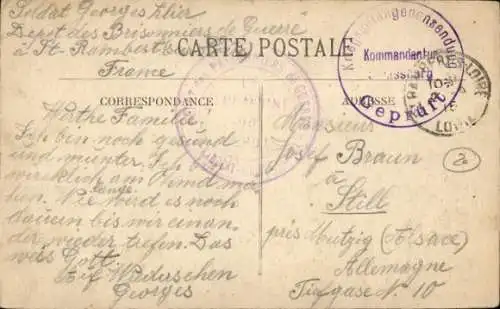 Soldat Georges Klier
Depot des Brisonniers de Guerre
à St. Rambert s
France
CARTE POSTALE
CORRESPONDANCE
ADRESSE
Kriegsgefangenensendung
Kommandantur
Geprüft
LOIRE
Werthe Familie,
Ich bin noch gesund
und munter. Ich
wirklich am Ohmd ma-
chen. Wie lange wird es noch
dauern bis wir einan-
der wieder trefen. Das
weis Gott.
Auf Wiedersehen
Georges
Monsieur
Josef Braun
à
Still
près Mutzig (Alsace)
Allemagne
Tiefgase No 10
20